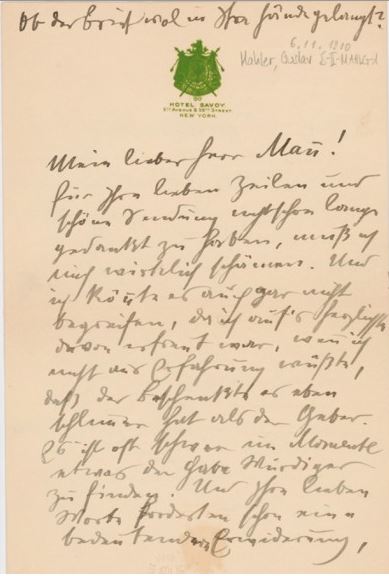 Ob der Brief wol in Ihre Hände gelangt?
6.11.1910
Mahler, Gustav E-II-MAHLG-1
HOTEL SAVOY.
5TH AVENUE & 59TH STREET.
NEW YORK.
Mein lieber Herr Man̄!
Für Ihre lieben Zeilen und
schöne Sendung nicht schon lange
gedankt zu haben, muß ich
mich wirklich schämen. Und
ich kön̄te es auch gar nicht
begreifen, da ich auf's herzlichste
davon erfreut war, wen̄ ich
nicht aus Erfahrung wüßte,
daß der Beschenkte es eben
schlim̄er hat als der Geber.
Es ist oft schwer im Momente
etwas der Gabe Würdiges
zu finden. Und Ihre lieben
Worte forderten schon eine
bedeutendere Erwiderung,